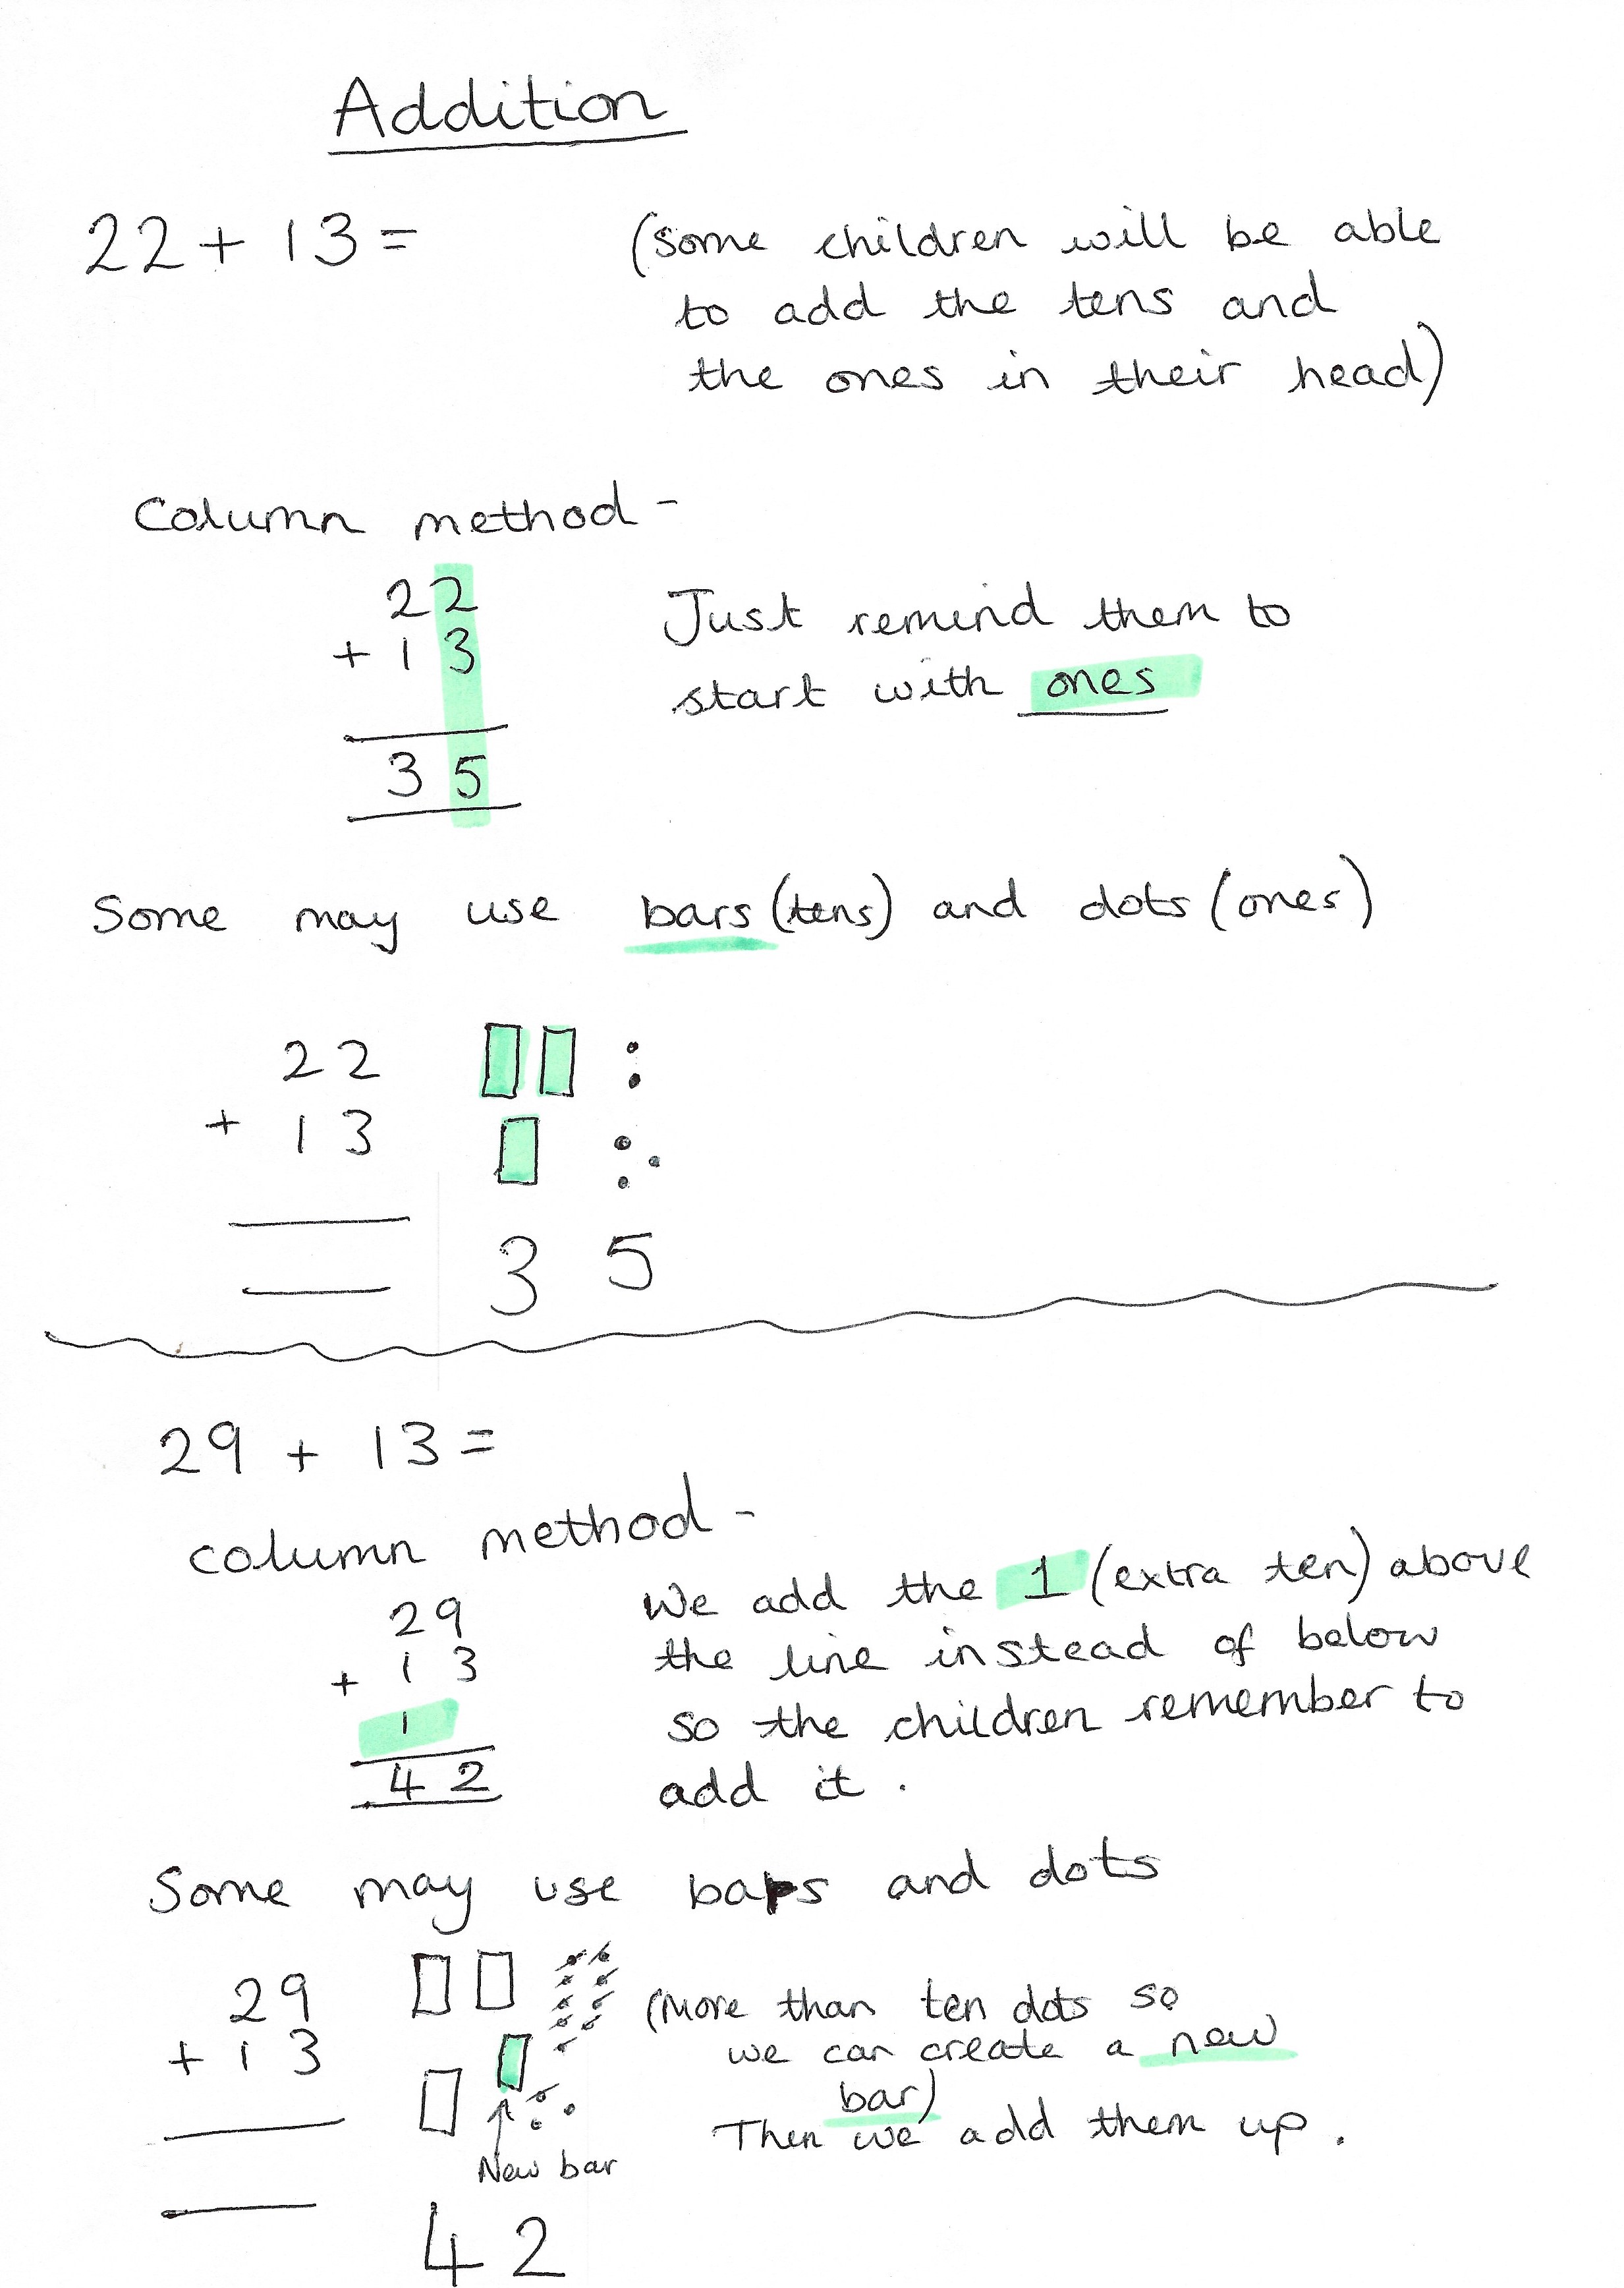 Addition
22 + 13 =
(some children will be able
to add the tens and
the ones in their head)
Column method -
22
+ 13
35
Just remind them to
start with ones
Some may use bars (tens) and dots (ones)
22
+ 13
3 5
29 + 13 =
column method -
29
+ 13
1
42
We add the 1 (extra ten) above
the line instead of below
so the children remember to
add it .
Some may use bars and dots
29
+ 13
(More than ten dots so
we can create a new
bar)
Then we add them up .
New bar
42